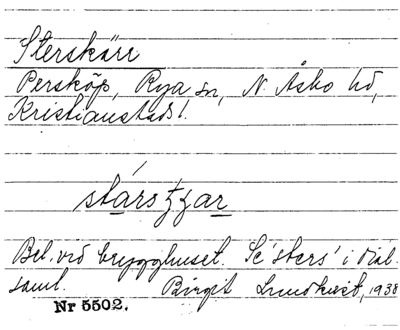 Sterskärr
Persköp, Rya sn, N Åsbo hd,
Kristianstads l.
Bel. vid brygghuset. Se 'sters' i dial.
saml. Birgit Lundkvist, 1938
Nr 5502.